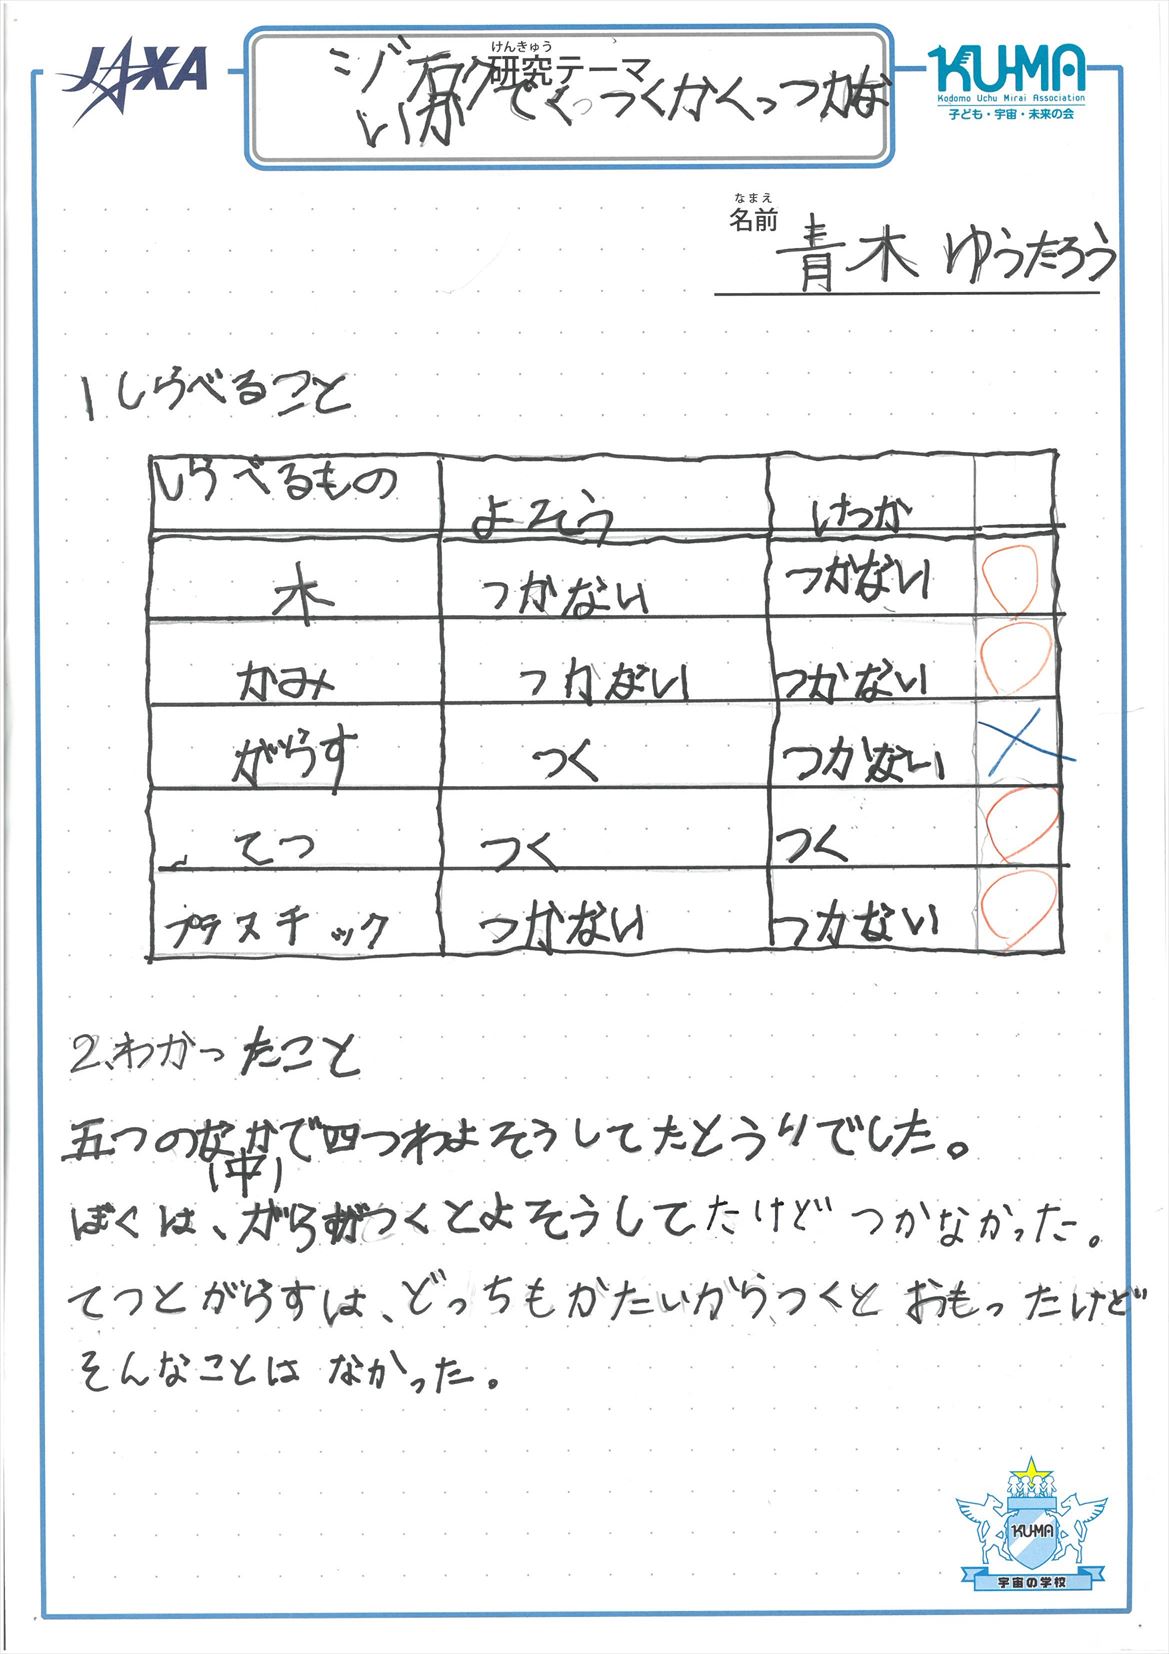 JAXA
けんきゅう
研究テーマ
じ石でくっつくかくっつか
いか
な
KU-MA
Kodomo Uchu Mirai Association
子ども・宇宙・未来の会
なまえ
名前
青木 ゆうたろう
1 しらべること
しらべるもの よそう けっか
木 つかない つかない ○
かみ つかない つかない ○
がらす つく つかない ×
てつ つく つく ○
プラスチック つかない つかない ○
2、わかったこと
五つのなかで四つわよそうしてたとうりでした。
(中)
ぼくは、がらすがつくとよそうしてたけど つかなかった。
てつとがらすは、どっちもかたいがらつくと おもったけど
そんなことは なかった。
KU-MA
宇宙の学校